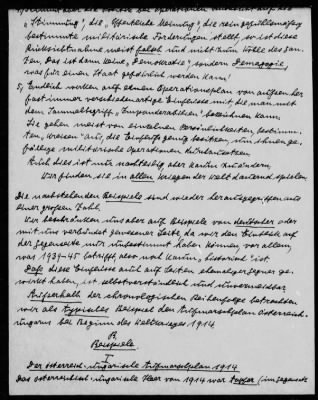 "Stimmung", die "öffentliche Meinung", die rein gefühlsmässig
bestimmte militärische Forderungen stellt, so ist diese
Rücksichtnahme meist falsch und nicht zum Wohle des Gan-
zen. Das ist dann keine "Demokratie", sondern Demagogie,
was für einen Staat gefährlich werden kann!
5, Endlich wirken auf einen Operationsplan von aussen her
fast immer verschiedenartige Einflüsse mit, die man mit
dem Sammelbegriff "Imponderabilien" bezeichnen kann.
Sie gehen meist von einzelnen Persönlichkeiten, bestimm-
ten "Kreisen" aus, die Einfluss genug besitzen, um ihnen ge-
fällige militärische Operationen
Auch dies ist nur nachteilig oder kaum zu ändern.
Wir finden sie in allen Kriegen der Welt dauernd spielen.
Die nachstehenden Beispiele sind wieder herausgegriffen aus
einer großen Zahl.
Wir beschränken uns aber auf Beispiele von deutscher oder
mit uns verbündet gewesener Seite, da wir den Einblick auf
der Gegenseite nur unbestimmt haben können, vor allem,
was 1939-45 betrifft, also noch kaum "historisch" ist.
Daß diese Einflüsse auch auf Seiten ehemaliger Gegner ge-
wirkt haben, ist selbstverständlich und unvermeidbar.
Außerhalb der chronologischen Reihenfolge betrachten
wir als typisches Beispiel den Aufmarschplan Österreich-
Ungarns bei Beginn des Weltkrieges 1914
B
Beispiele
I
Der österreich-ungarische Aufmarschplan 1914
Das österreichisch-ungarische Heer von 1914 war tapfer (im Gegensatz